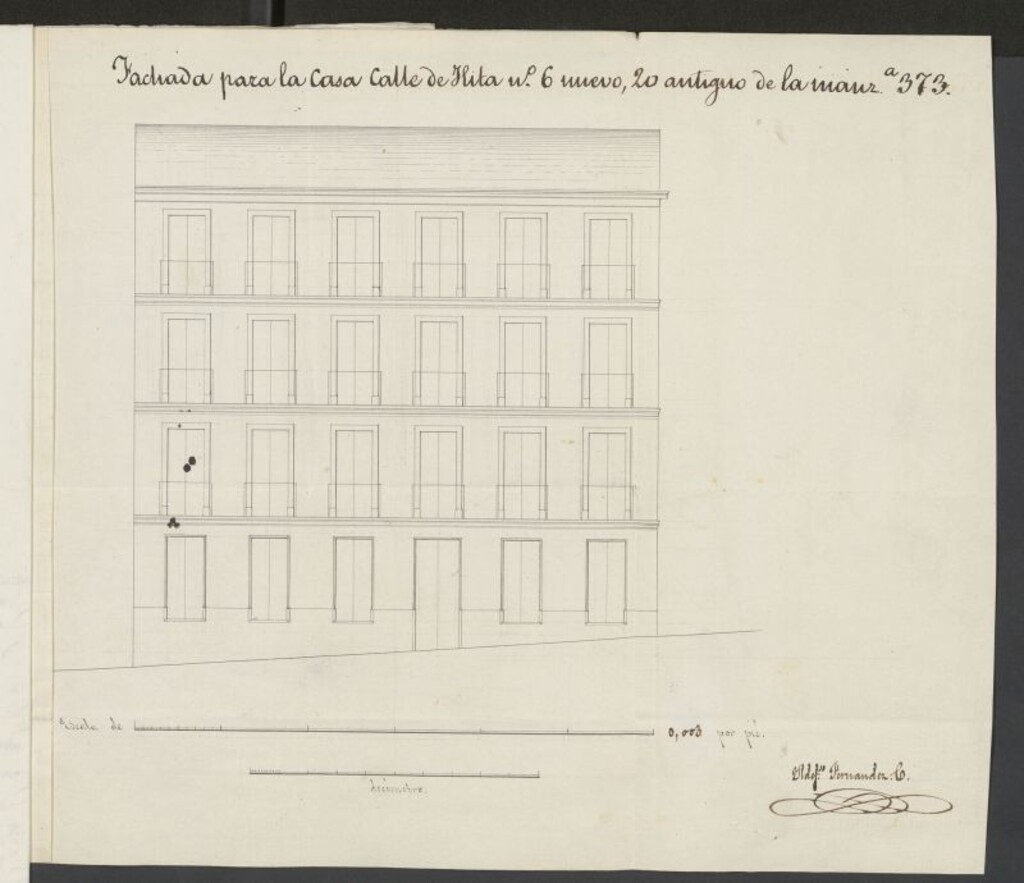 Fachada para la Casa Calle de Hita n.º 6 nuevo, 20 antiguo de la manz.ª 373.
Escala de 0,003 por pié.
decimetro.
Ildef.so Fernandez C.